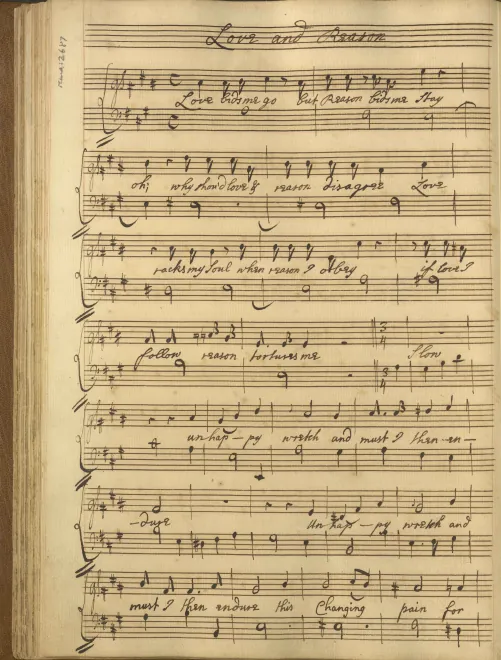 Love and Reason
Love bids me go but Reason bids me Stay
oh; why should love & reason disagree Love
racks my Soul when reason I Obey if love I
follow reason tortures me Slow
un hap - py wretch and must I then en -
- dure Un hap - py wretch and
must I then endure this Changing pain for